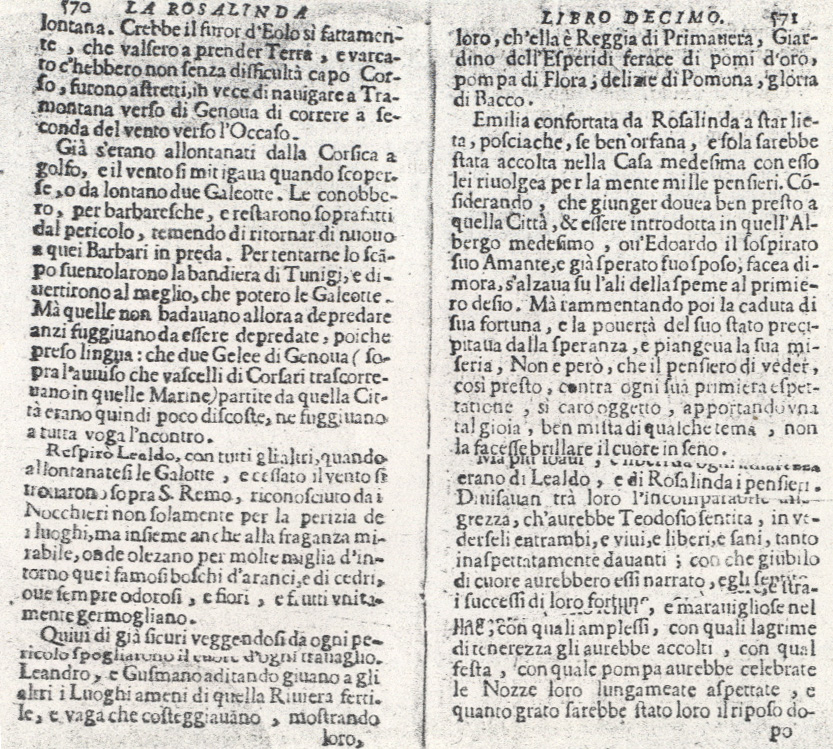 570 LA ROSALINDA
lontana. Crebbe il furor d'Eolo sì fattamen-
te, che valsero a prender Terra, e varca-
to c'hebbero non senza difficultà capo Cor-
so, furono astretti, in vece di nauigare a Tra-
montana verso di Genoua di correre a se-
conda del vento verso l'Occaso.
Già s'erano allontanati dalla Corsica a
golfo, e il vento si mitigaua quando scoper-
se, o da lontano due Galeotte. Le conobbe-
ro, per barbaresche, e restarono soprafatti
dal pericolo, temendo di ritornar di nuouo
a quei Barbari in preda. Per tentarne lo scã-
po suentolarono la bandiera di Tunigi, e di-
uertirono al meglio, che potero le Galeotte.
Mà quelle non badauano allora a depredare
anzi fuggiuano da essere depredate, poiche
preso lingua: che due Gelee di Genoua (so-
pra l'auuiso che vascelli di Corsari trascorre-
uano in quelle Marine) partite da quella Cit-
tà erano quindi poco discoste, ne fuggiuano
a tutta voga l'ncontro.
Respirò Lealdo, con tutti gli altri, quando
allontanatesi le Galotte, e cessato il vento si
trouarono sopra S. Remo, riconosciuto da i
Nocchieri non solamente per la perizia de
i luoghi, ma insieme anche alla fraganza mi-
rabile, onde olezano per molte miglia d'in-
torno quei famosi boschi d'aranci, e di cedri,
oue sempre odorosi, e fiori, e frutti vnita-
mente germogliano.
Quiui di già sicuri veggendosi da ogni pe-
ricolo spogliarono il cuore d'ogni trauaglio.
Leandro, e Gusmano aditando giuano a gli
altri i Luoghi ameni di quella Riuiera ferti-
le, e vaga che costeggiauano, mostrando
loro,
LIBRO DECIMO. 571
loro, ch'ella è Reggia di Primauera, Giar-
dino dell'Esperidi ferace di pomi d'oro,
pompa di Flora; delizie di Pomona, gloria
di Bacco.
Emilia confortata da Rosalinda a star lie-
ta, posciache, se ben'orfana, e sola sarebbe
stata accolta nella Casa medesima con esso
lei riuolgea per la mente mille pensieri. Cõ-
siderando, che giunger douea ben presto a
quella Città, & essere introdotta in quell'Al-
bergo medesimo, ou'Edoardo il sospirato
suo Amante, e già sperato suo sposo, facea di-
mora, s'alzaua su l'ali della speme al primie-
ro desio. Mà rammentando poi la caduta di
sua fortuna, e la pouertà del suo stato preci-
pitaua dalla speranza, e piangeua la sua mi-
seria, Non e però, che il pensiero di veder,
così presto, contra ogni sua primiera espet-
tatione, sì caro oggetto, apportando vna
tal gioia, ben mista di qualche tema, non
la facesse brillare il cuore in seno.
Ma più
erano di Lealdo, e di Rosalinda i pensieri.
Diuisauan trà loro l'incomparabile alle-
grezza, ch'aurebbe Teodosio sentita, in ve-
derseli entrambi, e viui, e liberi, e sani, tanto
inaspettatamente dauanti; con che giubilo
di cuore aurebbero essi narrato, egli
i successi di loro fortune, e marauigliose nel
con quali amplessi, con quali lagrime
di tenerezza gli aurebbe accolti, con qual
festa, con quale pompa aurebbe celebrate
le Nozze loro lungameate aspettate, e
quanto grato sarebbe stato loro il riposo do-
po